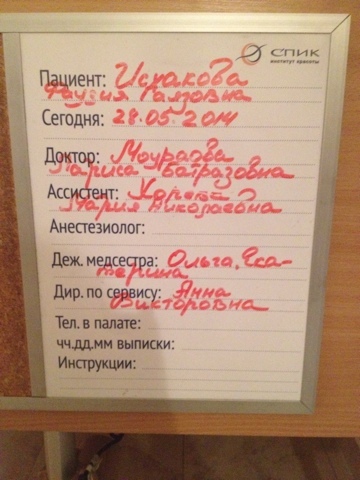 СПИК
институт красоты
Пациент: Исхакова
Фаузия Гаязовна
Сегодня: 28.05.2014
Доктор: Моураова
Лариса Батразовна
Ассистент:
Мария Николаевна
Анестезиолог:
Деж. медсестра: Ольга, Ека-
терина
Дир. по сервису: Анна
Викторовна
Тел. в палате:
чч.дд.мм выписки:
Инструкции: